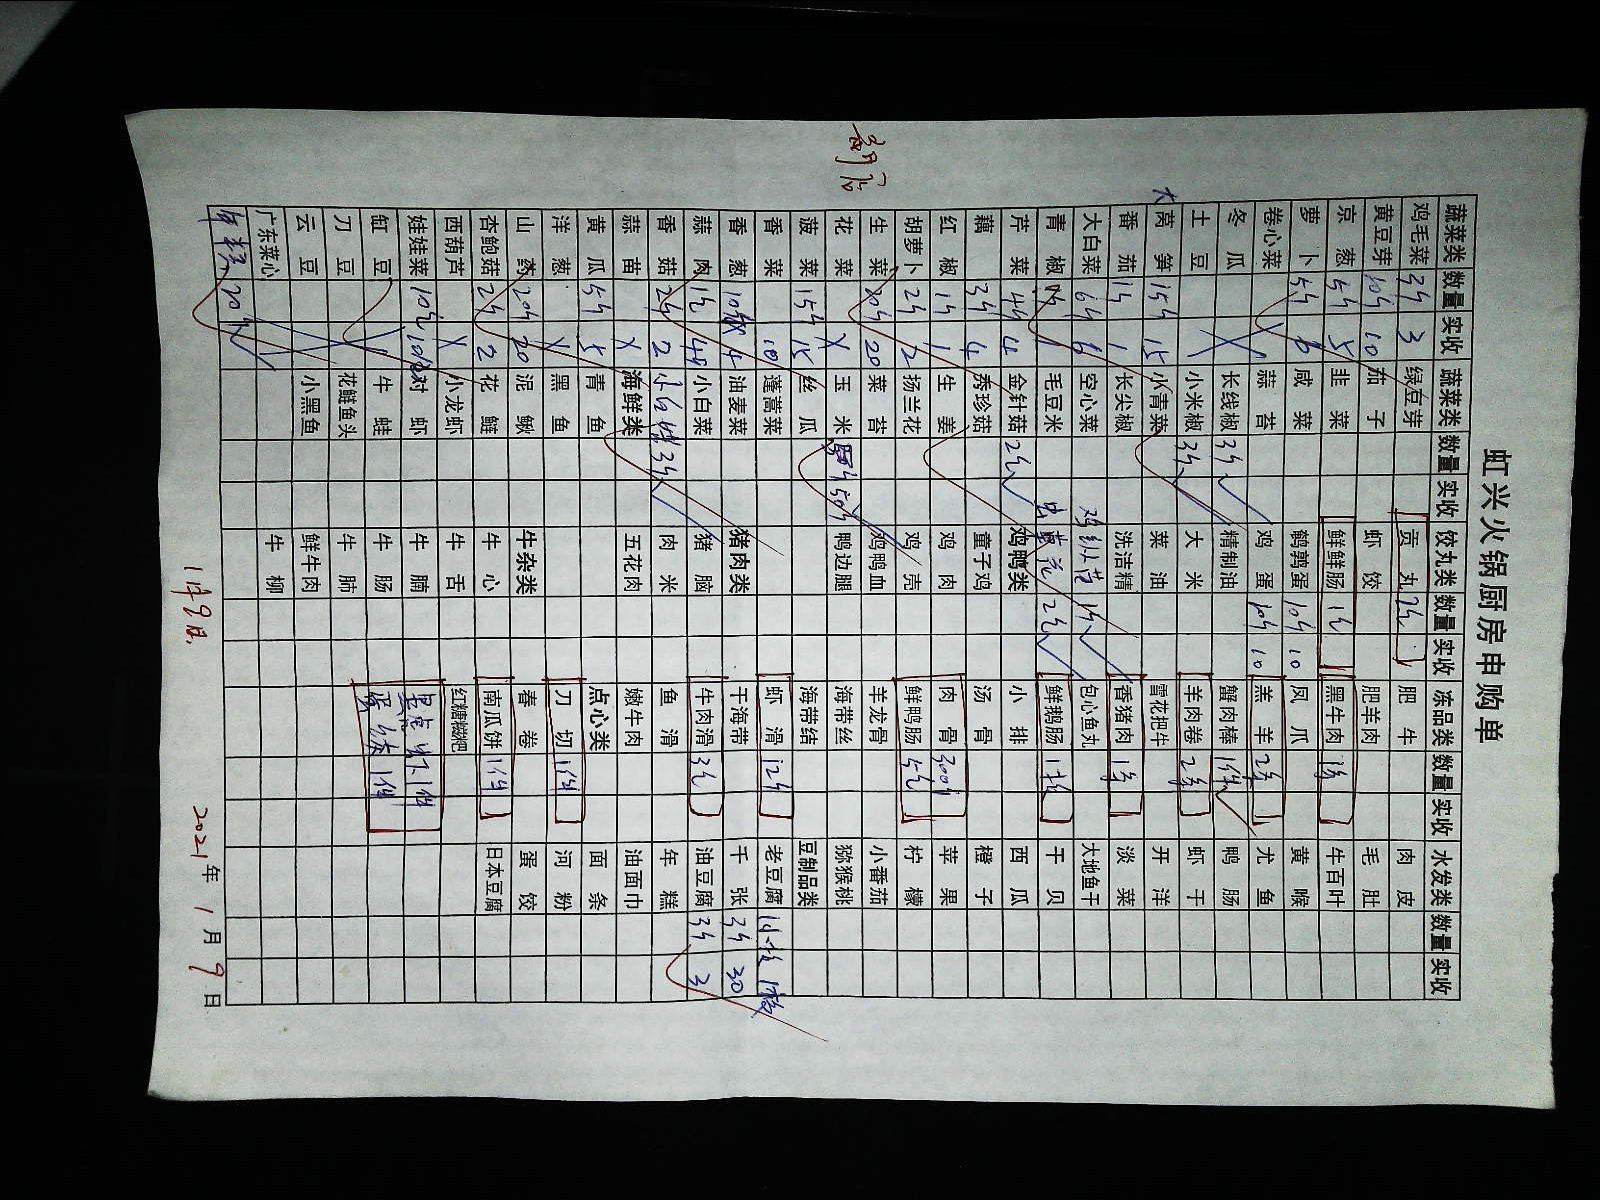 虹兴火锅厨房申购单
蔬菜类 数量 实收 蔬菜类 数量 实收 饺丸类 数量 实收 冻品类 数量 实收 水发类 数量 实收
鸡毛菜 3斤 3 绿豆芽 贡丸 肥牛 肉皮
黄豆芽 10斤 10 茄子 虾饺 肥羊肉 毛肚
京葱 5斤 5 韭菜 鲜鲜肠 1包 黑牛肉 牛百叶
萝卜 5斤 6 咸菜 鹌鹑蛋 10斤 10 凤爪 黄喉
卷心菜 蒜苔 鸡蛋 10斤 10 羔羊 2条 尤鱼
冬瓜 长线椒 3斤 精制油 蟹肉棒 1件 鸭肠
土豆 小米椒 3斤 大米 羊肉卷 2条 虾干
大 莴笋 15斤 15 小青菜 菜油 雪花把牛 开洋
番茄 1斤 1 长尖椒 洗洁精 香猪肉 1条 淡菜
大白菜 6斤 6 空心菜 鸡纵菇 1斤 包心鱼丸 大地鱼干
青椒 1 毛豆米 虫草花 2包 鲜鹅肠 干贝
芹菜 4斤 4 金针菇 2包 鸡鸭类 小排 西瓜
藕 3斤 4 秀珍菇 童子鸡 汤骨 橙子
红椒 1斤 1 生姜 鸡肉 肉骨 300斤 苹果
胡萝卜 2斤 2 扬兰花 鸡壳 鲜鸭肠 5包 柠檬
生菜 20斤 20 菜苔 鸡鸭血 羊龙骨 小番茄
花菜 X 玉米 50斤 鸭边腿 海带丝 猕猴桃
菠菜 15斤 15 丝瓜 海带结 豆制品类
香菜 10 蓬蒿菜 虾滑 12包 老豆腐
香葱 4 油麦菜 猪肉类 干海带 千张 3斤 30
蒜肉 1包 小白菜 猪脑 牛肉滑 3包 油豆腐 3斤 3
香菇 2斤 2 3斤 肉米 鱼滑 年糕
蒜苗 X 海鲜类 五花肉 嫩牛肉 油面巾
黄瓜 5斤 5 青鱼 点心类 面条
洋葱 X 黑鱼 刀切 1件 河粉
山药 20斤 20 泥鳅 牛杂类 春卷 蛋饺
杏鲍菇 2斤 2 花鲢 牛心 南瓜饼 1件 日本豆腐
西葫芦 X 小龙虾 牛舌 红糖糍粑
娃娃菜 10包 10包 对虾 牛腩 1件
缸豆 牛蛙 牛肠 1件
刀豆 花鲢鱼头 牛肺
云豆 小黑鱼 鲜牛肉
广东菜心 牛柳
20斤
1月9日 2021年1月9日